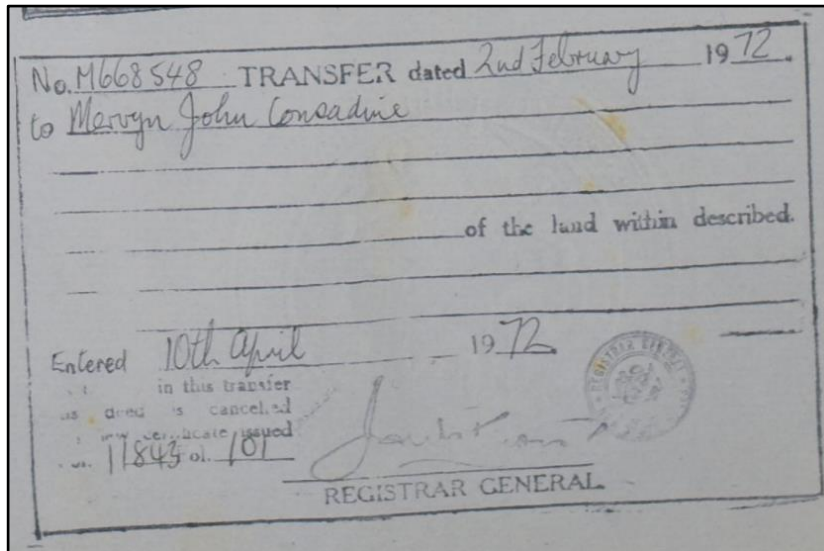 No. M668548 TRANSFER dated 2nd February 1972.
to Mervyn John Consadine
of the land within described.
Entered 10th April 1972
in this transfer
deed is cancelled
certificate issued
11843 Fol. 101
REGISTRAR GENERAL
REGISTRAR GENERAL